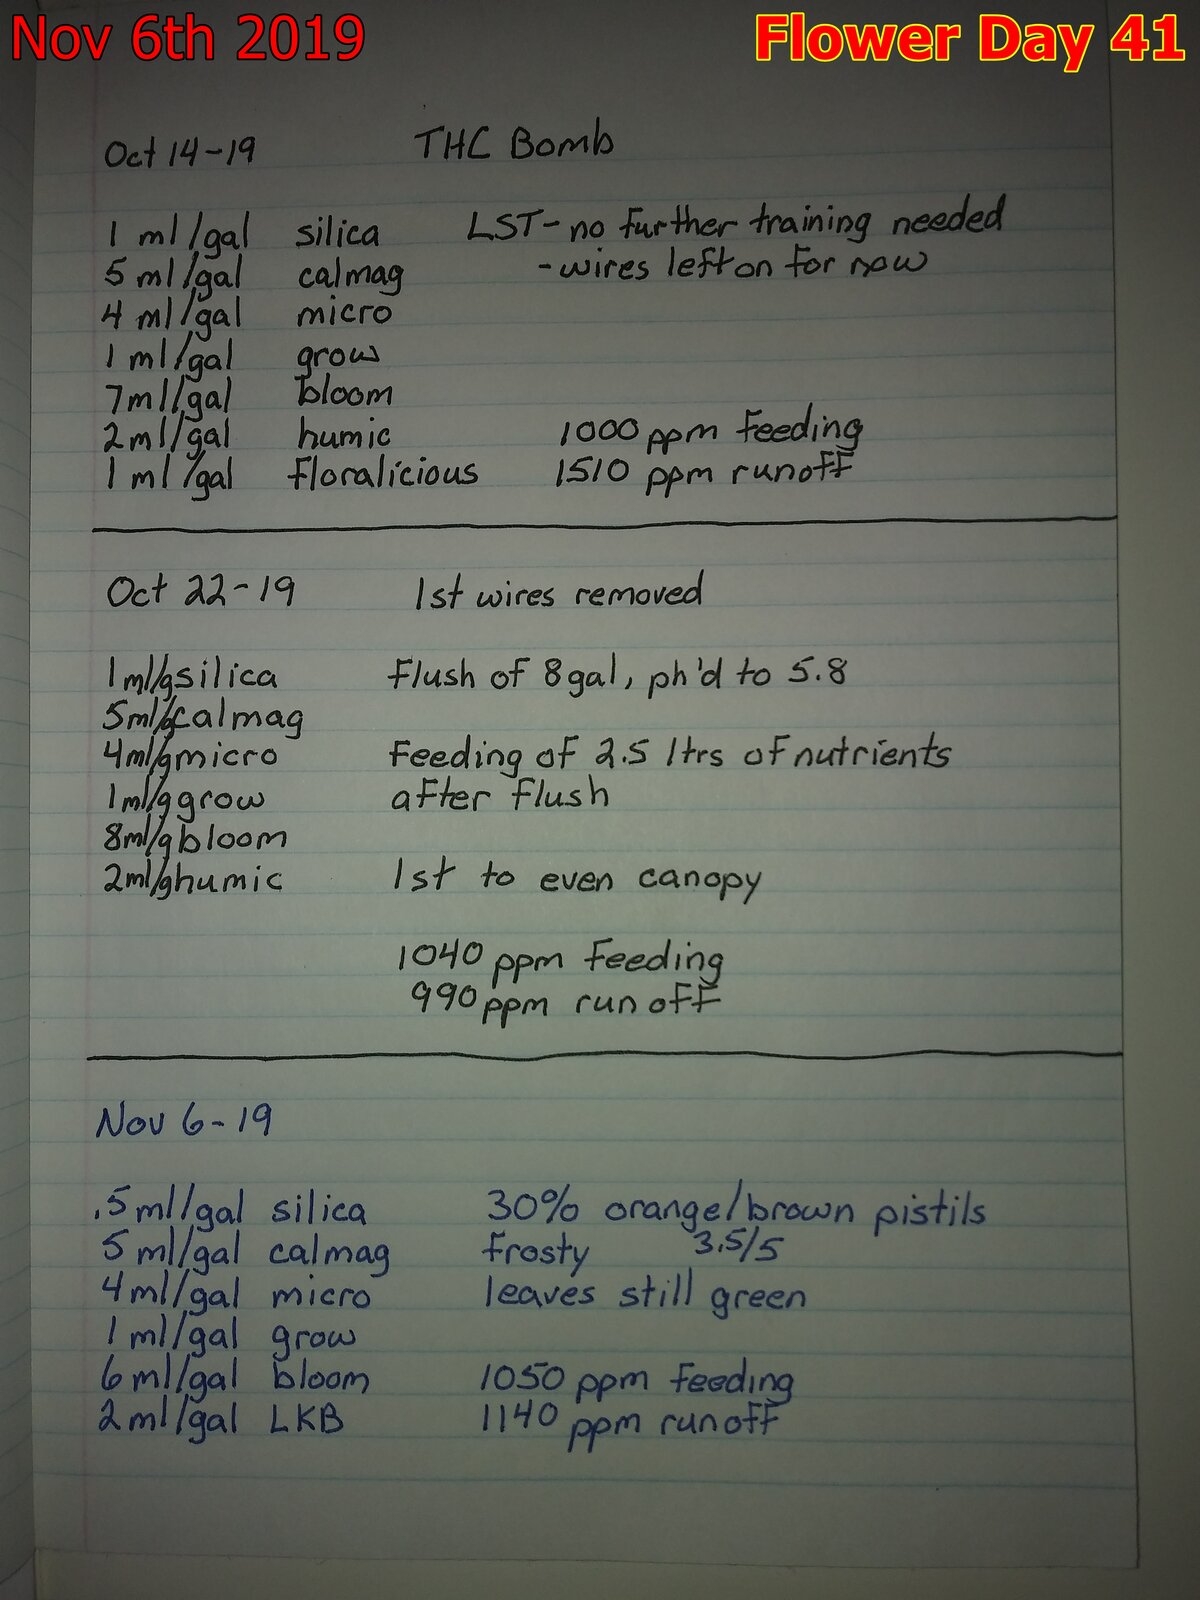 Nov 6th 2019 Flower Day 41
Oct 14-19 THC Bomb
1 ml/gal silica LST- no further training needed
5 ml/gal calmag -wires left on for now
4 ml/gal micro
1 ml/gal grow
7ml/gal bloom
2ml/gal humic 1000 ppm feeding
1 ml/gal floralicious 1510 ppm runoff
Oct 22-19 1st wires removed
1ml/g silica Flush of 8 gal, ph'd to 5.8
5ml/g calmag
4ml/g micro Feeding of 2.5 ltrs of nutrients
1ml/g grow after flush
8ml/g bloom
2ml/g humic 1st to even canopy
1040 ppm feeding
990 ppm runoff
Nov 6-19
.5 ml/gal silica 30% orange/brown pistils
5 ml/gal calmag frosty 3.5/5
4 ml/gal micro leaves still green
1 ml/gal grow
6 ml/gal bloom 1050 ppm feeding
2 ml/gal LKB 1140 ppm runoff